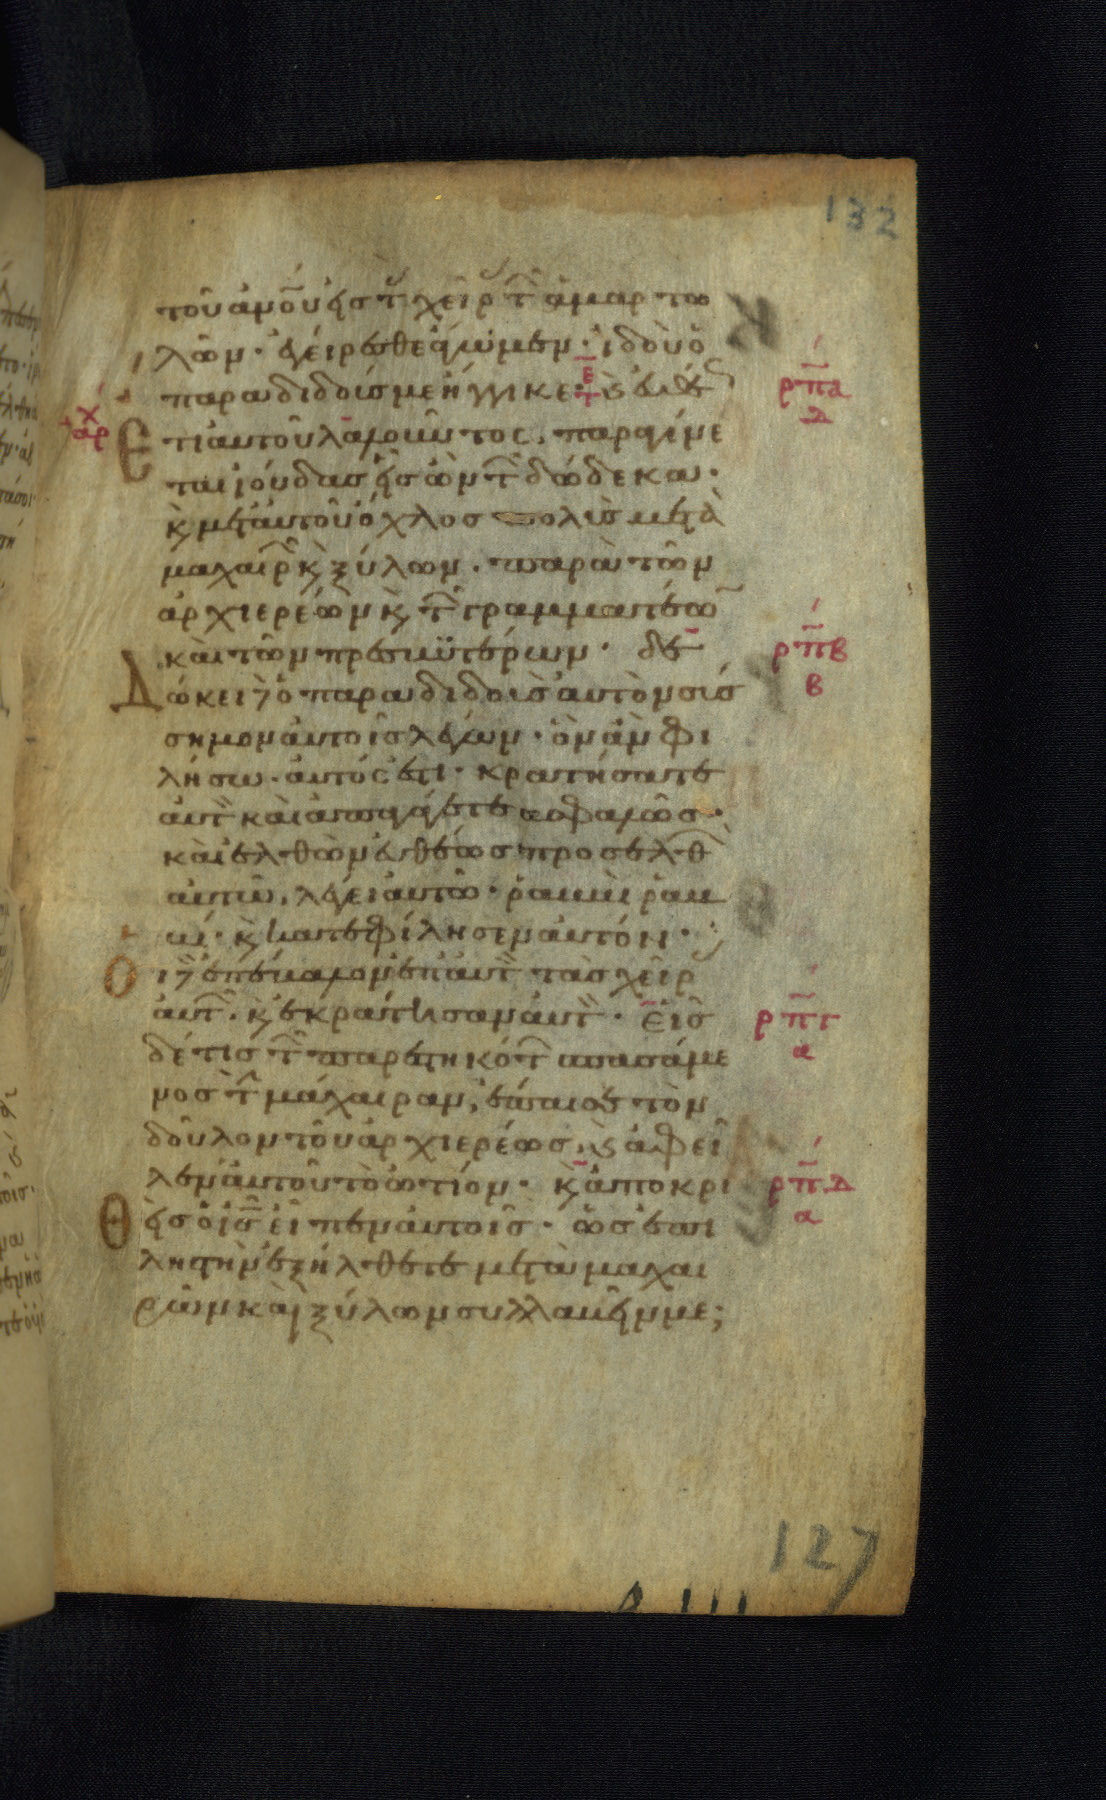 132
τοῦ ἀνου εἰς τ χεῖρ τ ἁμαρτω
λῶν· ἐγείρεσθε ἄγωμεν· ἰδοὺ ὁ
παραδιδοὺς με ἤγγικε· κ εὐθ
ρπα
δ
χ
αρ
Ετι αὐτοῦ λαλοῦντος, παραγίνε
ται ἰούδας εἷς ὢν τ δώδεκα·
κ μετ αὐτοῦ ὄχλος πολὺς μετὰ
μαχαιρ κ ξύλων· παρὰ τῶν
ἀρχιερέων κ τ γραμματέω
καὶ τῶν πρεσβϋτέρων· δε
ρπβ
β
Δώκει δὲ ὁ παραδιδοὺς αὐτὸν σύσ
σημον αὐτοῖς λέγων· ὃν ἂν φι
λήσω· αὐτός ἐστι· κρατήσατε
αὐτ καὶ ἀπαγάγετε ἀσφαλῶς·
καὶ ἐλθὼν εὐθέως προσελθ
αὐτῶ, λέγει αὐτῶ· ῥαββὶ ῥαβ
βί· κ κατεφίλησεν αὐτόν·
Οι δὲ ἐπέβαλον ἐπ αὐτ τὰς χεῖρ
αὐτ· κ ἐκράτησαν αὐτ· Εἷς
ρπγ
α
δέ τις τ παρεστηκότ σπασάμε
νος τ μάχαιραν, ἔπαισε τὸν
δοῦλον τοῦ ἀρχιερέως, κ ἀφεῖ
λεν αὐτοῦ τὸ ὠτίον· κ ἀποκρι
ρπδ
α
Θεὶς ὁ ις εἶπεν αὐτοῖς· ὡς ἐπὶ
ληστὴν ἐξήλθετε μετὰ μαχαι
ρῶν καὶ ξύλων συλλαβεῖν με;
127